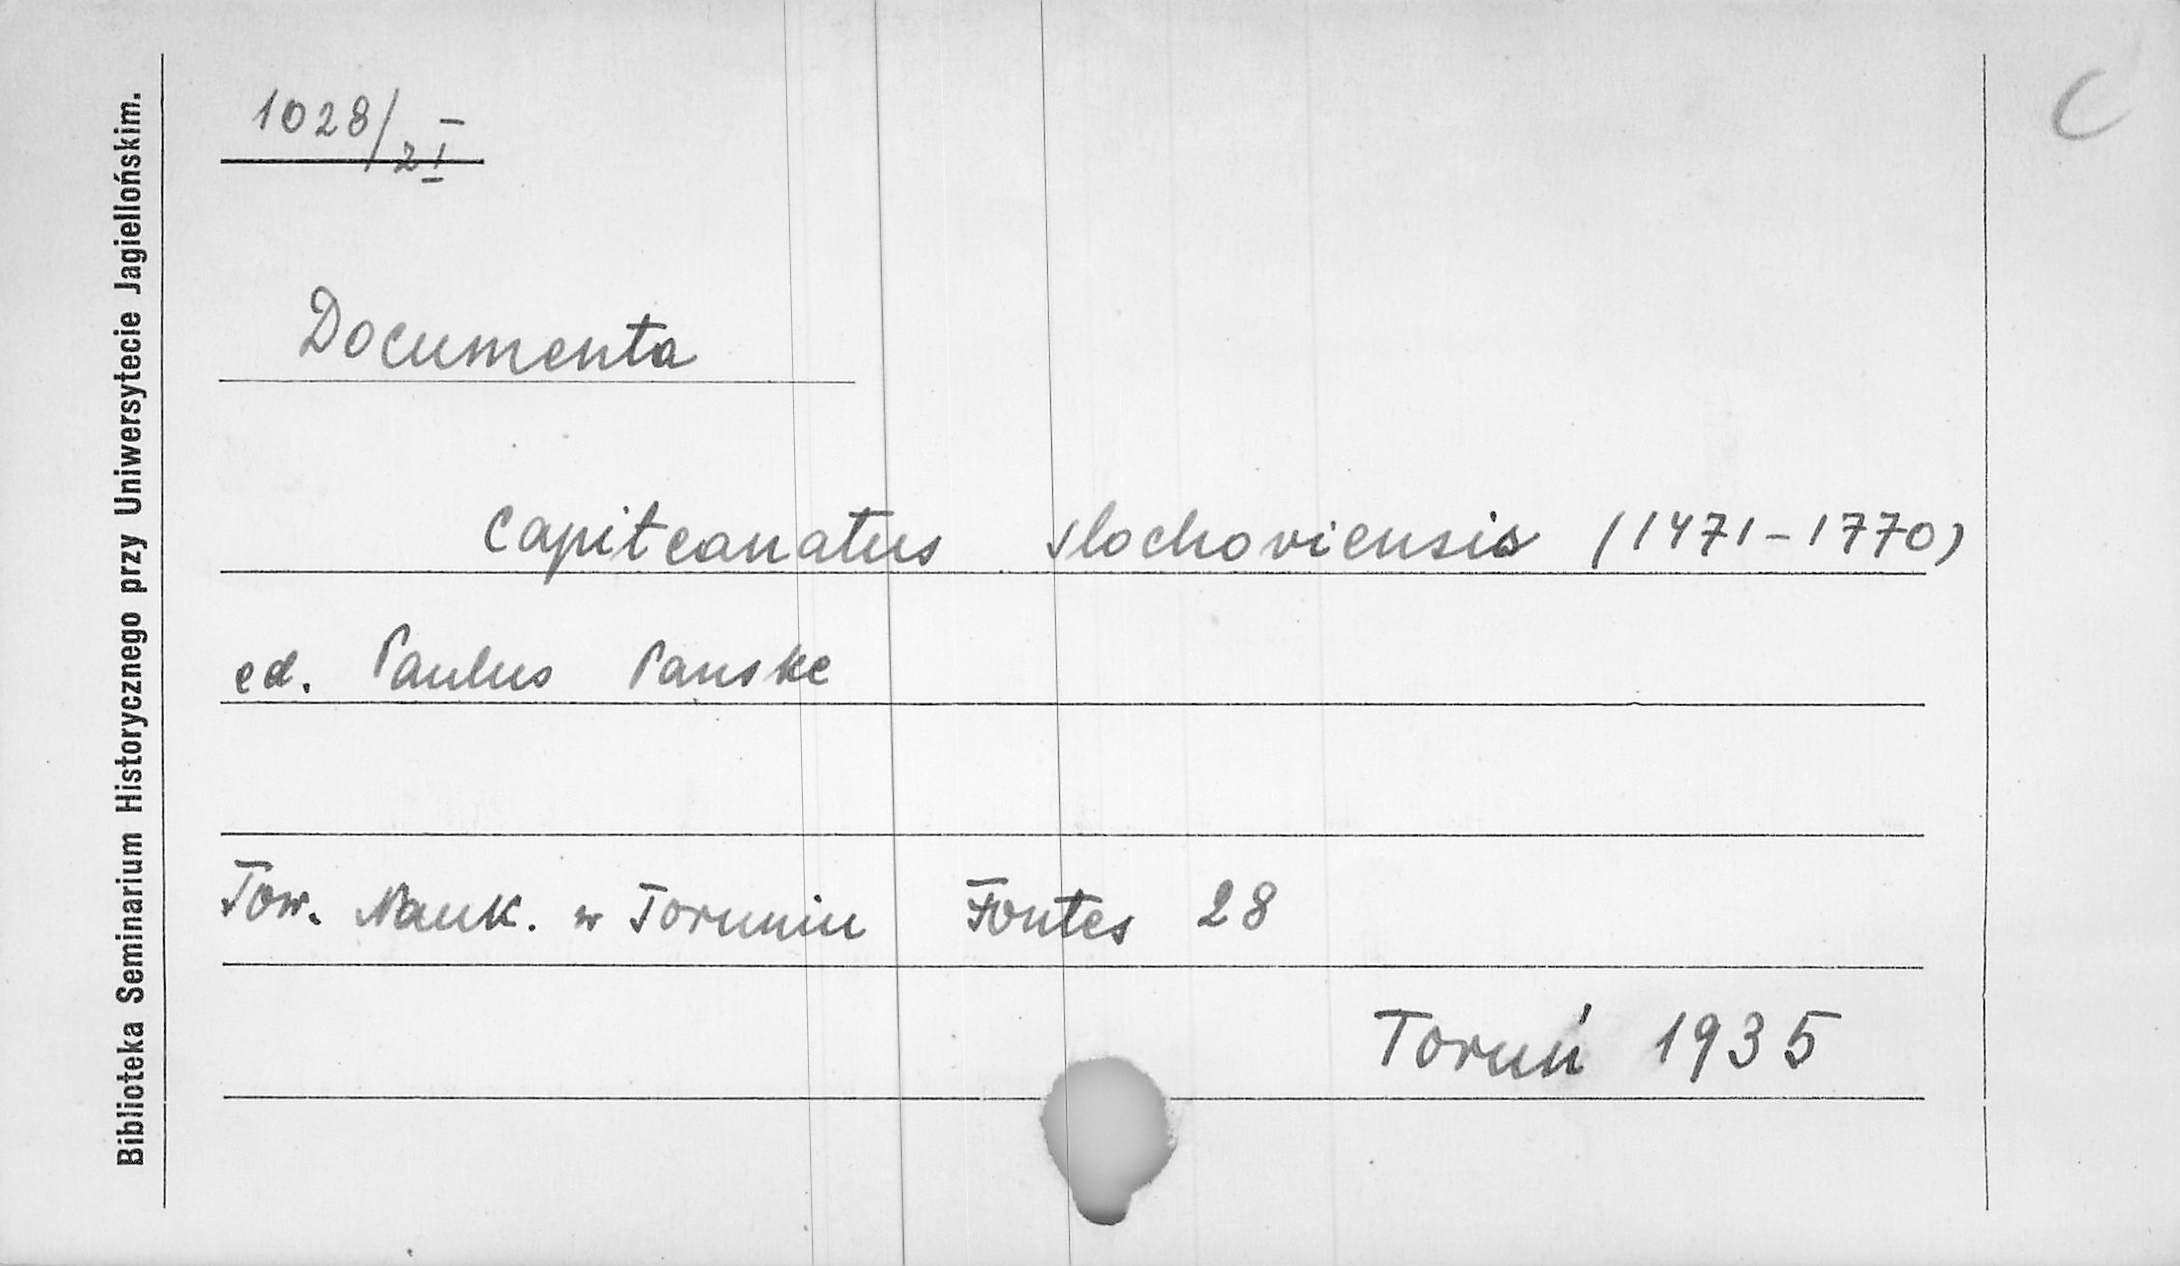 1028/2I
C
Documenta
capiteanatus slochoviensis (1471-1770)
ed. Paulus Panske
Tow. Nauk. w Toruniu Fontes 28
Toruń 1935
Biblioteka Seminarium Historycznego przy Uniwersytecie Jagiellońskim.